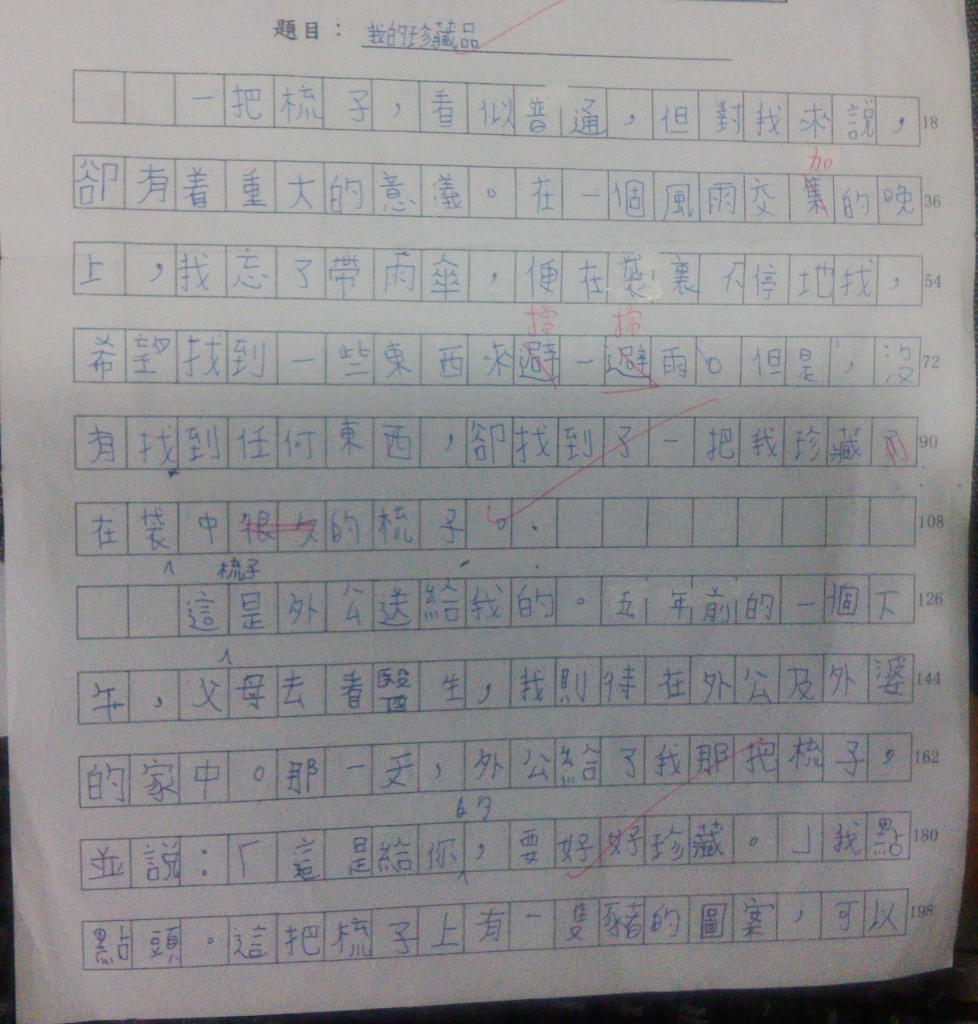 題目：我的珍藏品
一把梳子，看似普通，但對我來說，18
加
卻有着重大的意義。在一個風雨交集的晚36
上，我忘了帶雨傘，便在袋裏不停地找，54
擋 擋
希望找到一些東西來避一避雨。但是，沒72
有找到任何東西，卻找到了一把我珍藏90
在袋中很久的梳子。108
梳子
這是外公送給我的。五年前的一個下126
午，父母去看醫生，我則待在外公及外婆144
的家中。那一天，外公給了我那把梳子，162
的
並說：「這是給你，要好好珍藏。」我點180
點頭。這把梳子上有一隻豬的圖案，可以198